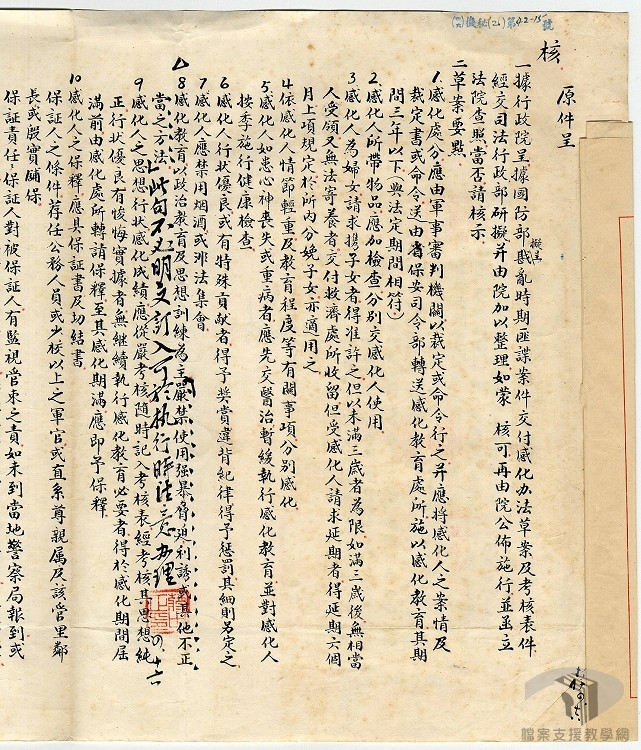 (四六)機秘(乙)第42-15號
核
原件呈
一據行政院呈據國防部擬呈戡亂時期匪諜案件交付感化办法草案及考核表件
經交司法行政部研擬并由院加以整理如蒙 核可再由院公佈施行並函立
法院查照當否請核示
二草案要點
1.感化處分應由軍事審判機關以裁定或命令行之并應將感化人之案情及
裁定書或命令送由省保安司令部轉送感化教育處所施以感化教育其期
間三年以下(與法定期間相符)
2.感化人所帶物品應加檢查分別交感化人使用
3.感化人為婦女請求携子女者得准許之但以未滿三歲者為限如滿三歲後無相當
人受領又無法寄養者交付救濟處所收留但受感化人請求延期者得延期六個
月上項規定於所內分娩子女亦適用之
4.依感化人情節輕重及教育程度等有關事項分別感化
5.感化人如患心神喪失或重病者應先交醫治暫緩執行感化教育並對感化人
按季施行健康檢查
6.感化人行狀優良或有特殊貢献者得予奖賞違背紀律得予懲罰其細則另定之
7.感化人應禁用烟酒或非法集會
8.感化教育以政治教育及思想訓練為主嚴禁使用强暴脅迫利誘或其他不正
當之方法
此句不必明文訂入可於執行時注意办理
四、十六
9.感化人之思想行狀感化成績應從嚴考核隨時記入考核表經考核其思想純
正行狀優良有悛悔實據者無繼續執行感化教育必要者得於感化期間屆
滿前由感化處所轉請保釋至其感化期滿應即予保釋
10.感化人之保釋應具保証書及切結書
保証人之條件荐任公務人員或少校以上之軍官或直系尊親属及該管里鄰
長或殷實舖保
保証責任:保証人對被保証人有監視管束之責如未到當地警察局報到或
檔案支援教學網